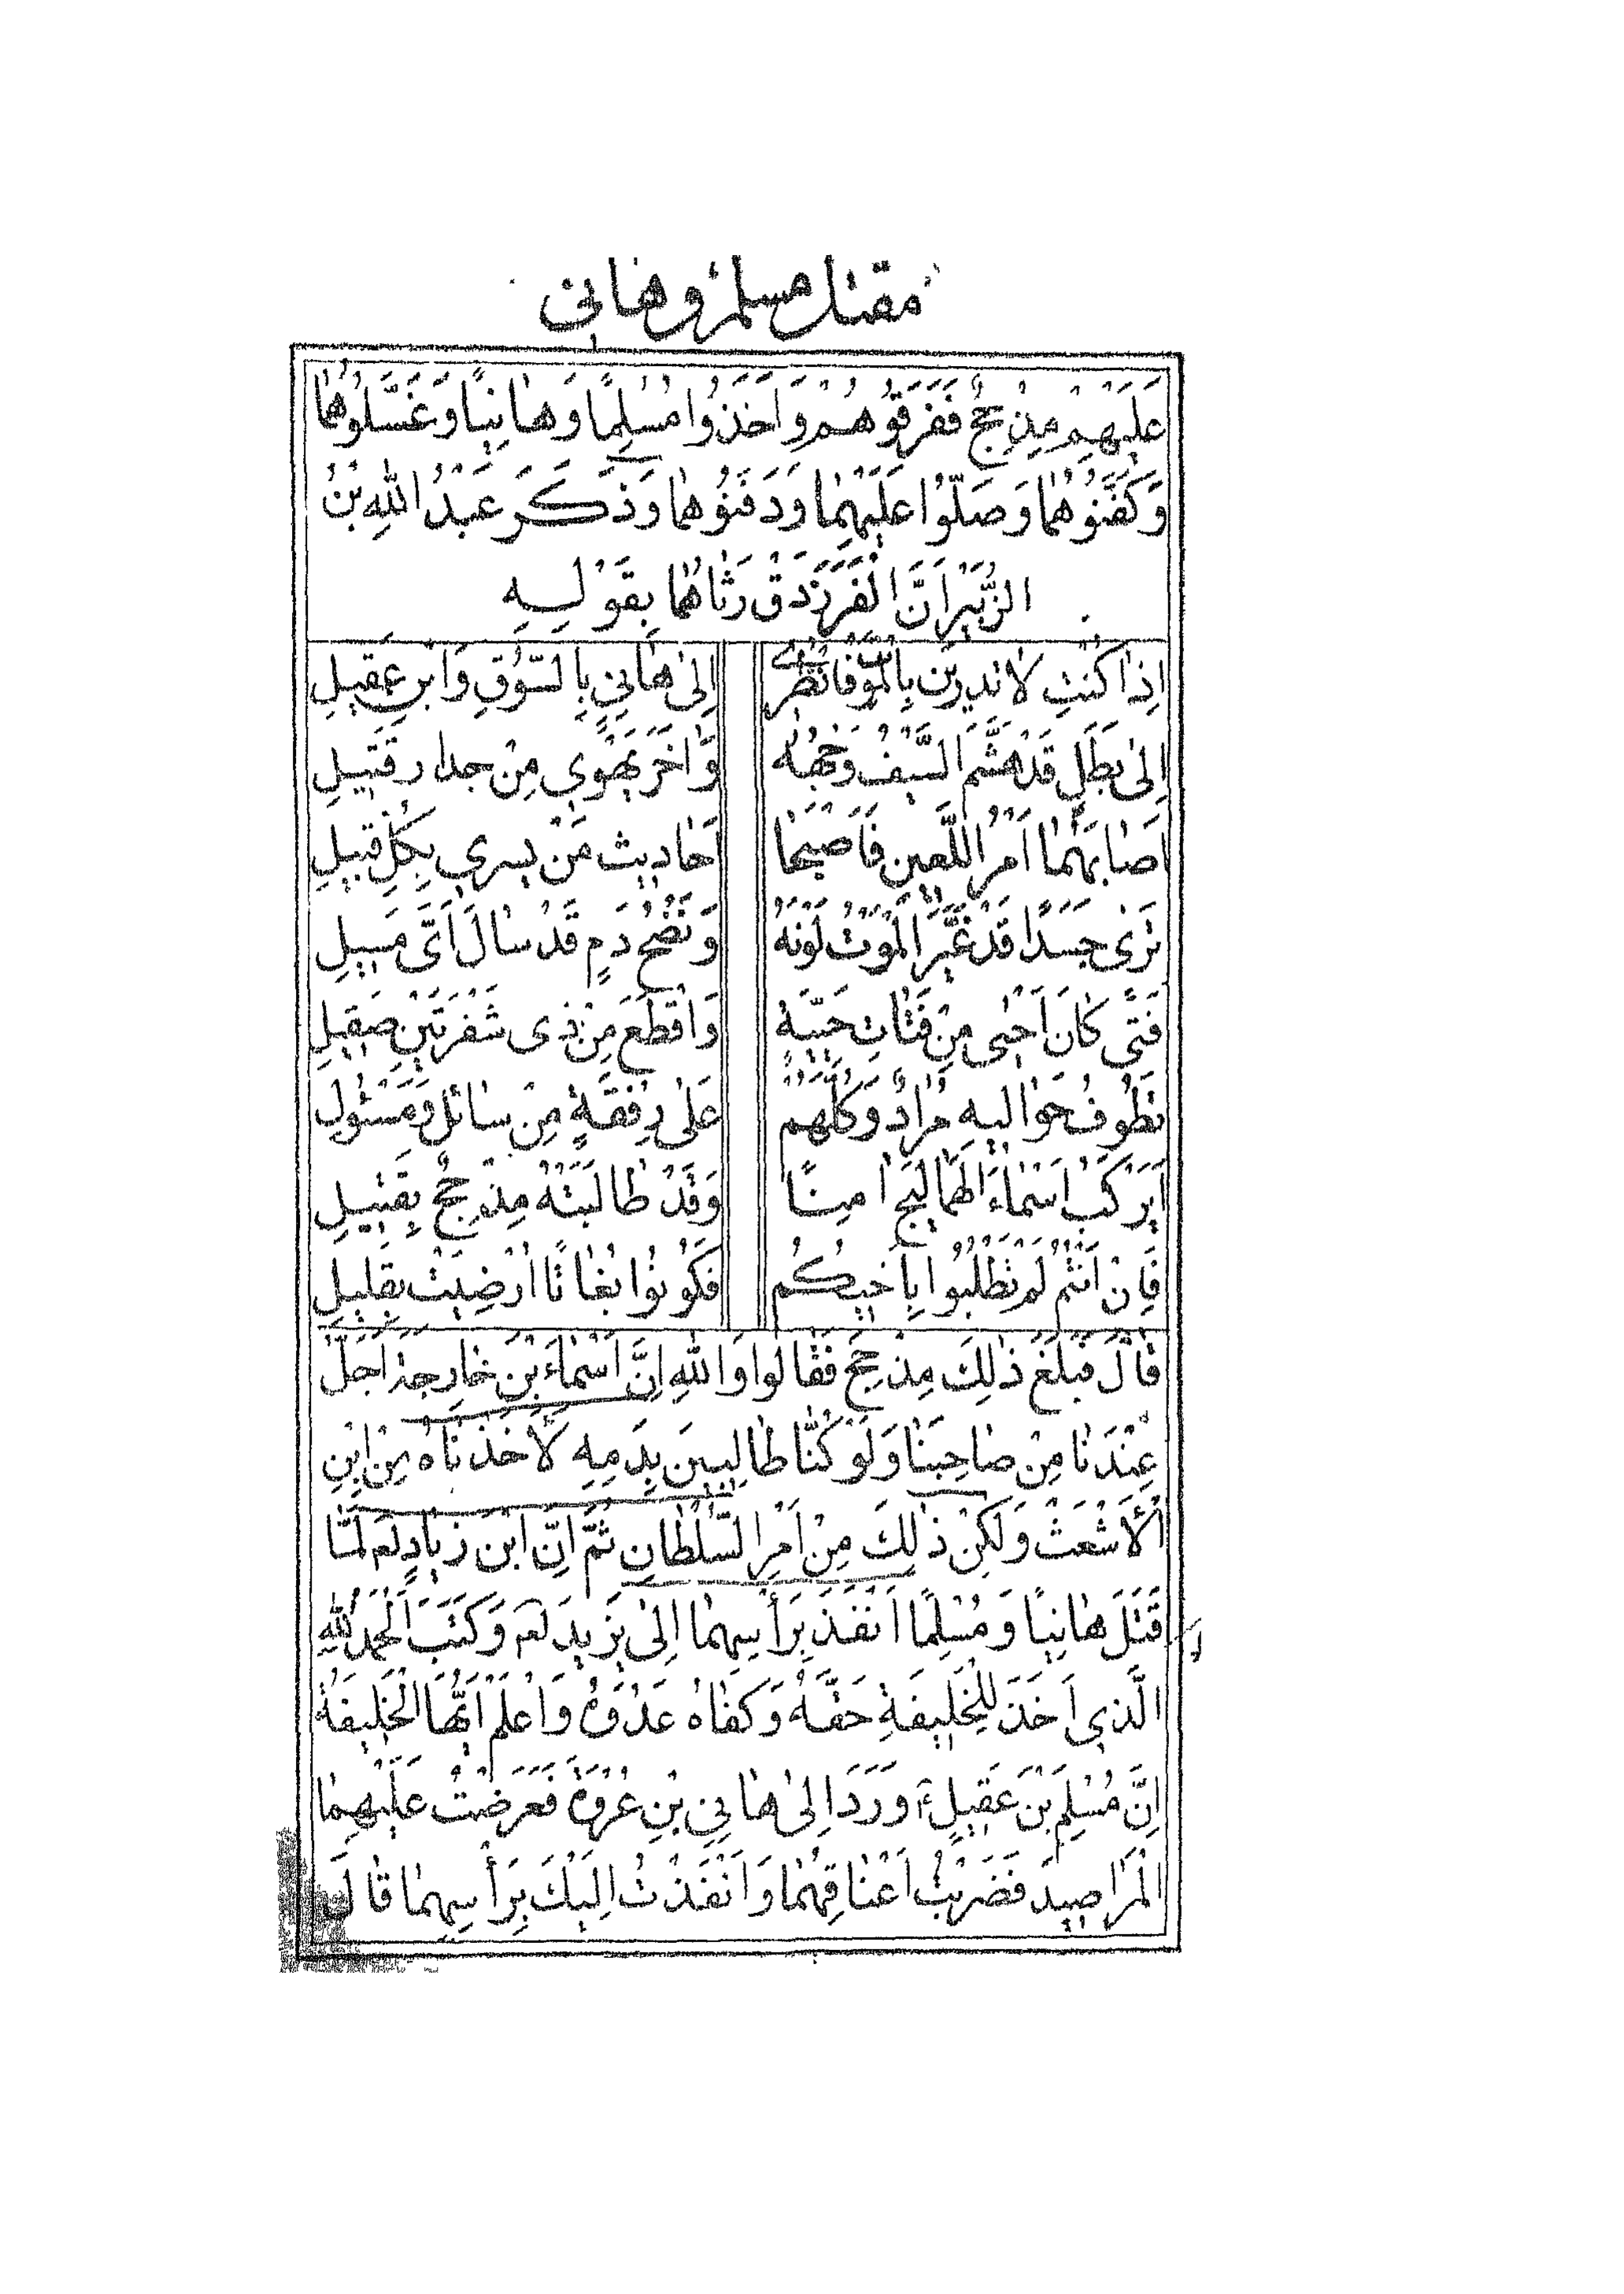 مقتل مسلم وهاني
عَلَيْهِمْ مِذْحِجٌ فَفَرَّقُوهُمْ وَاَخَذُوا مُسْلِمًا وَهٰانِيًا وَغَسَّلُوهُمٰا
وَكَفَّنُوهُمٰا وَصَلَّوْا عَلَيْهِمٰا وَدَفَنُوهُمٰا وَذَكَرَ عَبْدُ اللّٰهِ بْنُ
الزُّبَيْرِ اَنَّ الْفَرَزْدَقَ رَثٰاهُمٰا بِقَوْلِـهِ
اِذٰا كُنْتِ لاٰ تَدْرِيْنَ بِالْمَوْتِ فَانْظُرِي اِلىٰ هٰانِئٍ بِالسُّوْقِ وَابْنِ عَقِيلِ
اِلىٰ بَطَلٍ قَدْ هَشَّمَ السَّيْفُ وَجْهَهُ وَاٰخَرَ يَهْوِي مِنْ جِدٰارٍ قَتِيلِ
اَصٰابَهُمٰا اَمْرُ اللَّعِينِ فَاَصْبَحٰا اَحٰادِيثَ مَنْ يَسْرِي بِكُلِّ قَبِيلِ
تَرىٰ جَسَدًا قَدْ غَيَّرَ الْمَوْتُ لَوْنَهُ وَنَضْحُ دَمٍ قَدْ سٰالَ اَىَّ مَسِيلِ
فَتىً كٰانَ اَحْيىٰ مِنْ فَتٰاتٍ حَيِيَّةٍ وَاَقْطَعَ مِنْ ذِى شَفْرَتَيْنِ صَقِيلِ
تَطُوفُ حَوٰالَيْهِ مُرٰادٌ وَكُلُّهُمْ عَلىٰ رِقْبَةٍ مِنْ سٰائِلٍ وَمَسْئُولِ
اَيَرْكَبُ اَسْمٰاءُ الْهَمٰالِيجَ اٰمِنًا وَقَدْ طٰالَبَتْهُ مِذْحِجٌ بِقَتِيلِ
فَاِنْ اَنْتُمْ لَمْ تَطْلُبُوا بِاَخِيكُمْ فَكُونُوا بُغٰاتًا اُرْضِيَتْ بِقَلِيلِ
قٰالَ فَبَلَغَ ذٰلِكَ مِذْحِجَ فَقٰالُوا وَاللّٰهِ اِنَّ اَسْمٰاءَ بْنَ خٰارِجَةَ اَجَلُّ
عِنْدَنٰا مِنْ صٰاحِبِنٰا وَلَوْ كُنّٰا طٰالِبِينَ بِدَمِهِ لَاَخَذْنٰاهُ مِنْ اِبْنِ
الْاَشْعَثْ وَلٰكِنْ ذٰلِكَ مِنْ اَمْرِ السُّلْطٰانِ ثُمَّ اِنَّ ابْنَ زِيٰادٍ لعم لَمّٰا
قَتَلَ هٰانِيًا وَمُسْلِمًا اَنْفَذَ بِرَأْسِهِمٰا اِلىٰ يَزِيدَ لعم وَكَتَبَ اَلْحَمْدُ لِلّٰهِ
الَّذِي اَخَذَ لِلْخَلِيفَةِ حَقَّهُ وَكَفٰاهُ عَدُوَّهُ وَاعْلَمْ اَيُّهَا الْخَلِيفَةُ
اِنَّ مُسْلِمَ بْنَ عَقِيلٍ وَرَدَ اِلىٰ هٰانِي بْنِ عُرْوَةَ فَعَرَضْتُ عَلَيْهِمٰا
الْمَرٰاصِيدَ فَضَرَبْتُ اَعْنٰاقَهُمٰا وَاَنْفَذْتُ اِلَيْكَ بِرَأْسِهِمٰا قٰالَ